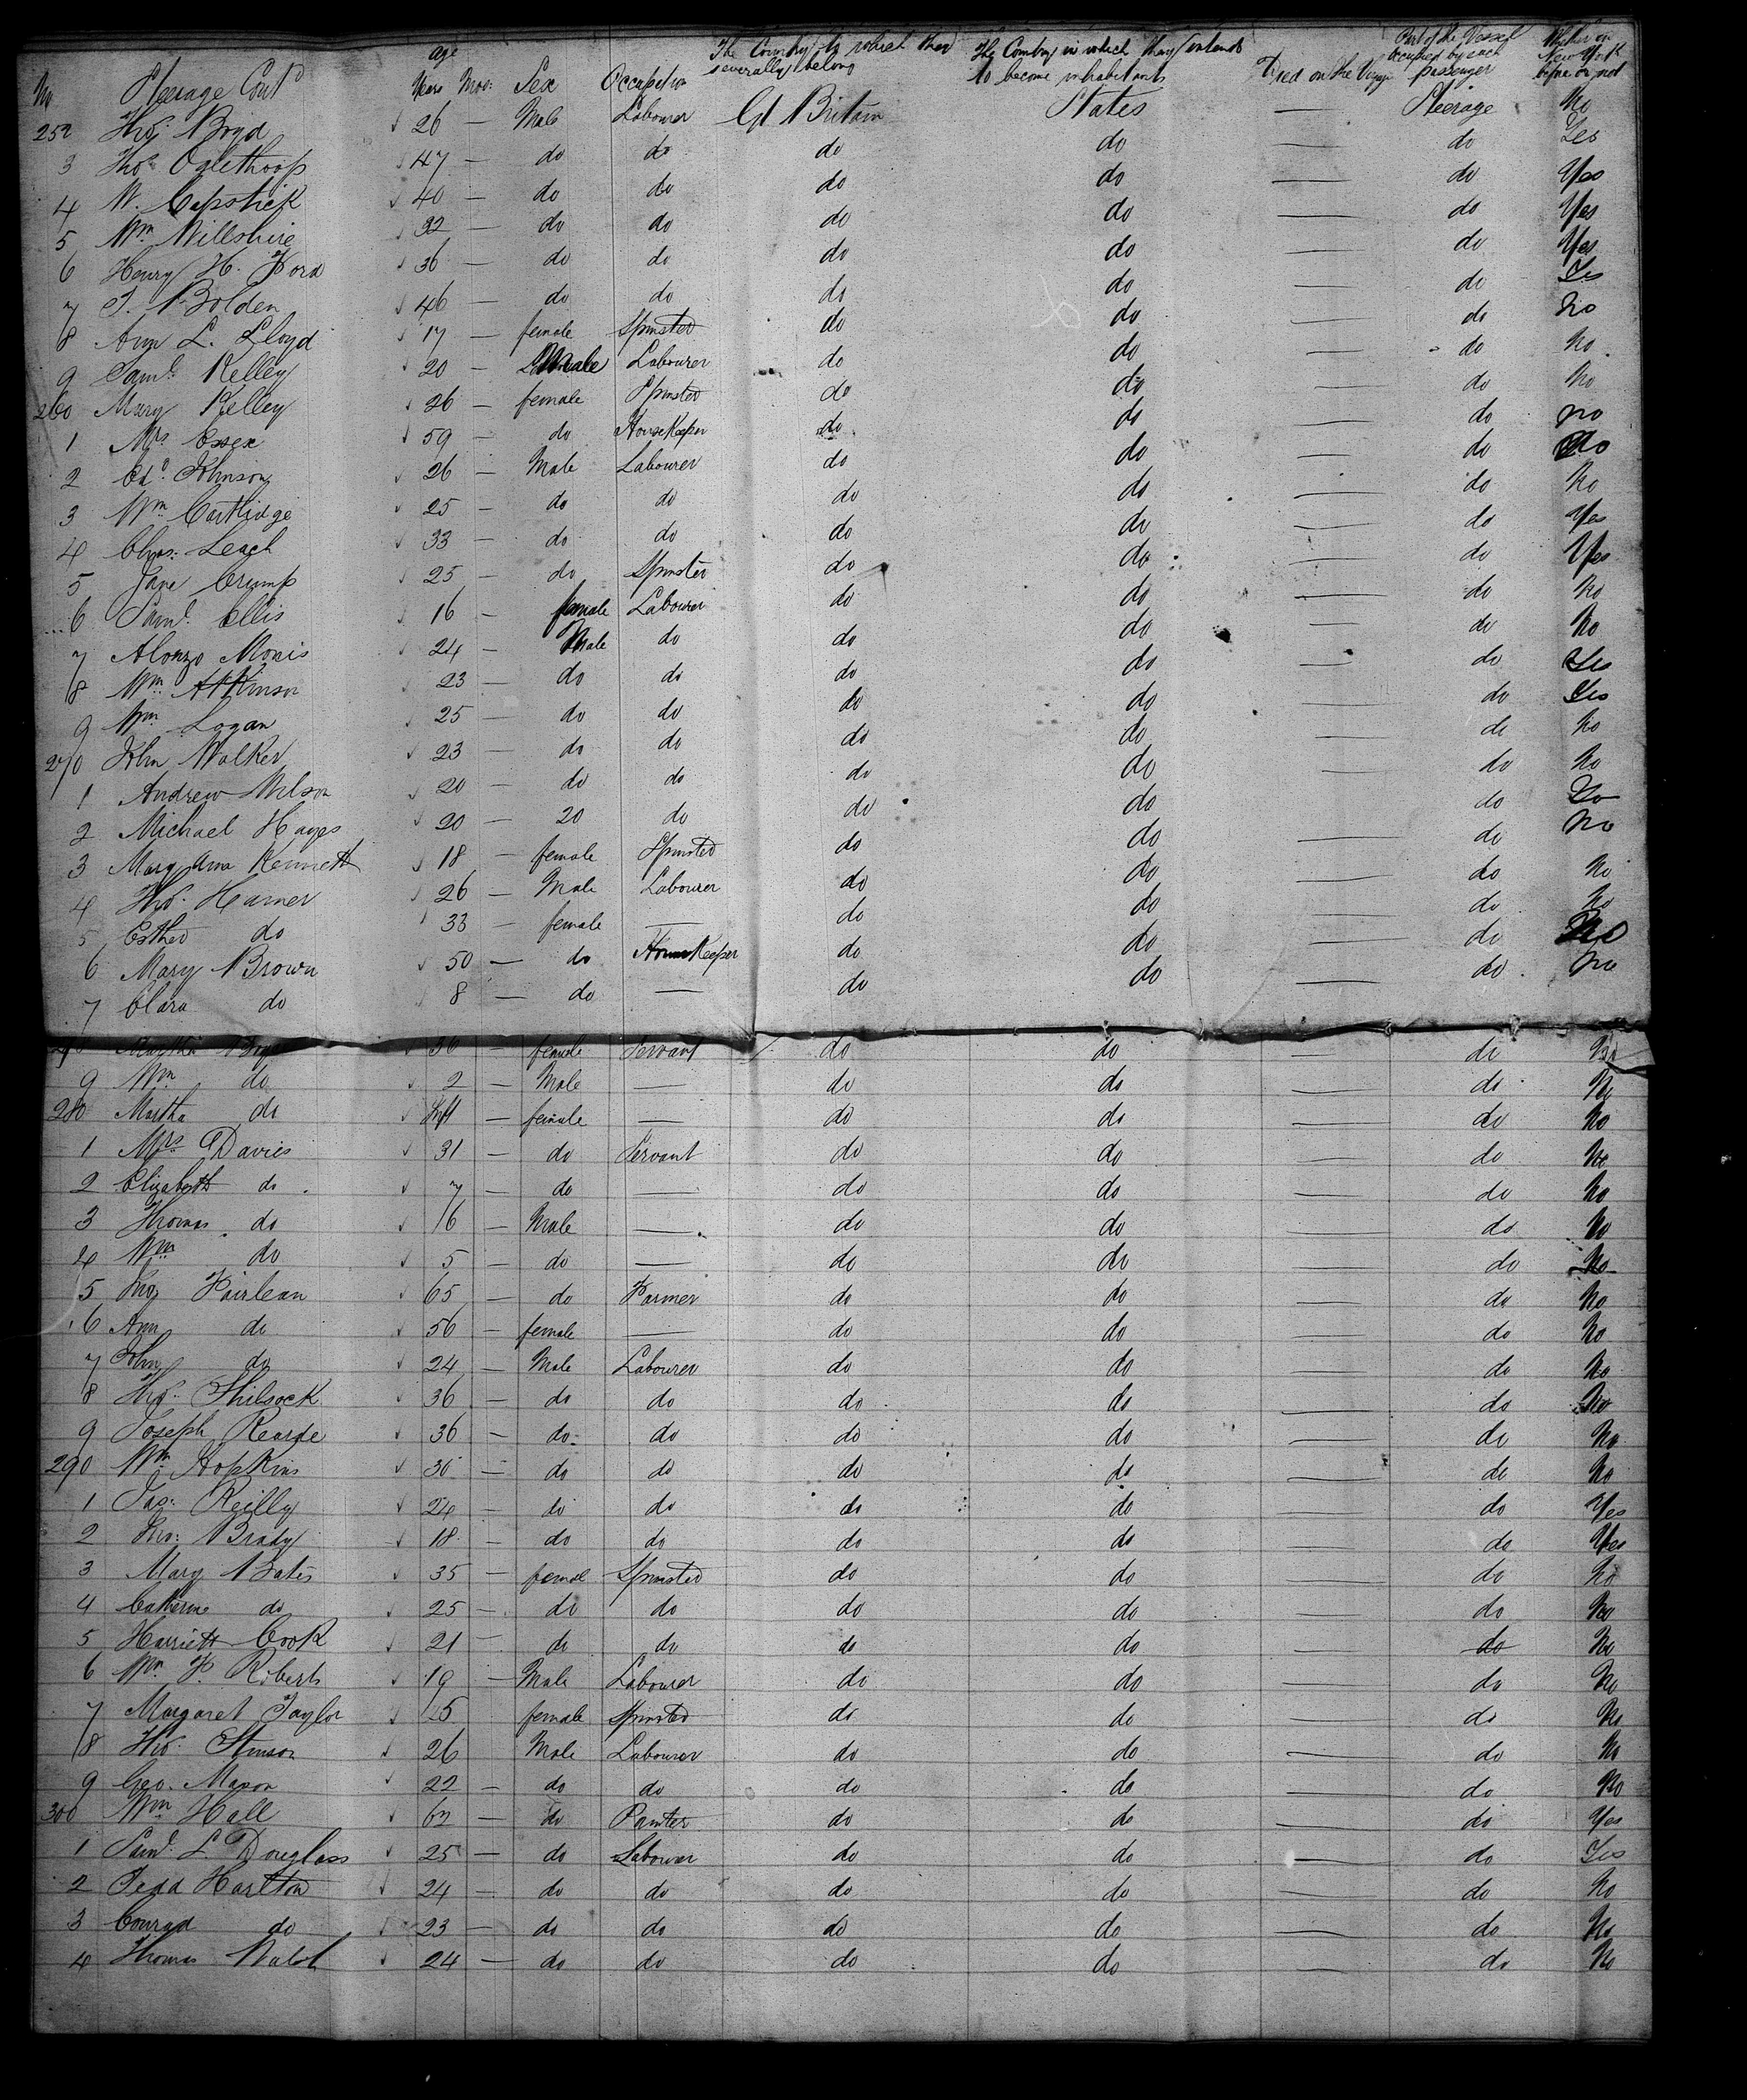 No Steerage Cont'd age Years Mos: Sex Occupation The Country to which they severally belong The Country in which they intends to become inhabitants Died on the Voyage Part of the Vessel occupied by each passenger Whether in New York before or not
252 Thos Boyd 26 — Male Labourer Gt Britain States — Steerage No
3 Thos Oglethorp 47 — do do do do — do Yes
4 W. Capstick 40 — do do do do — do Yes
5 Wm Willshire 32 — do do do do — do Yes
6 Henry H. Ford 36 — do do do do — do Yes
7 T. Bolden 46 — do do do do — do Yes
8 Ann L. Lloyd 17 — female Spinster do do — do No
9 Saml. Kelley 20 — Male Labourer do do — do No
260 Mary Kelley 26 — female Spinster do do — do No
1 Mrs Essex 59 — do HouseKeeper do do — do no
2 Ed. Johnson 26 — Male Labourer do do — do No
3 Wm Cartlidge 25 — do do do do — do No
4 Chas: Leach 33 — do do do do — do Yes
5 Jane Crump 25 — do Spinster do do — do Yes
6 Saml. Ellis 16 — female Labourer do do — do No
7 Alonzo Moris 24 — Male do do do — do No
8 Wm Atkinson 23 — do do do do — do Yes
9 Wm Logan 25 — do do do do — do Yes
270 John Walker 23 — do do do do — do No
1 Andrew Wilson 20 — do do do do — do No
2 Michael Hayes 20 — 20 do do do — do
3 Mary Ann Kennett 18 — female Spinster do do — do No
4 Thos. Harner 26 — Male Labourer do do — do No
5 Esther do 33 — female — do do — do No
6 Mary Brown 50 — do HouseKeeper do do — do No
7 Clara do 8 — do — do do — do no
Martha 30 — female Servant do do — do No
9 Wm do 2 — Male — do do — do No
280 Martha do Inft — female — do do — do No
1 Mrs Davies 31 — do Servant do do — do No
2 Elizabeth do 7 — do — do do — do No
3 Thomas do 6 — Male — do do — do No
4 Wm do 5 — do — do do — do No
5 Fairlean 65 — do Farmer do do — do No
6 Ann do 56 — female — do do — do No
7 John do 24 — Male Labourer do do — do No
8 Thos. Shilsock 36 — do do do do — do No
9 Joseph Rearde 36 — do do do do — do No
290 Wm Hopkins 30 — do do do do — do No
1 Jas: Reilly 24 — do do do do — do Yes
2 Brady 18 — do do do do — do Yes
3 Mary Bates 35 — femal Spinster do do — do No
4 Catherine do 25 — do do do do — do No
5 Harriett Cook 21 — do do do do — do No
6 Wm F. Roberts 19 — Male Labourer do do — do No
7 Margaret Taylor female Spinster do do — do No
8 Thos. Stinson 26 Male Labourer do do — do No
9 Geo. Mason 22 — do do do do — do No
300 Wm Hall — do Painter do do — do Yes
1 Saml. L. Douglass 25 — do Labourer do do — do Yes
2 Harlton 24 — do do do do — do No
3 Conrad do 23 — do do do do — do No
4 Thomas Walsh 24 — do do do do — do No